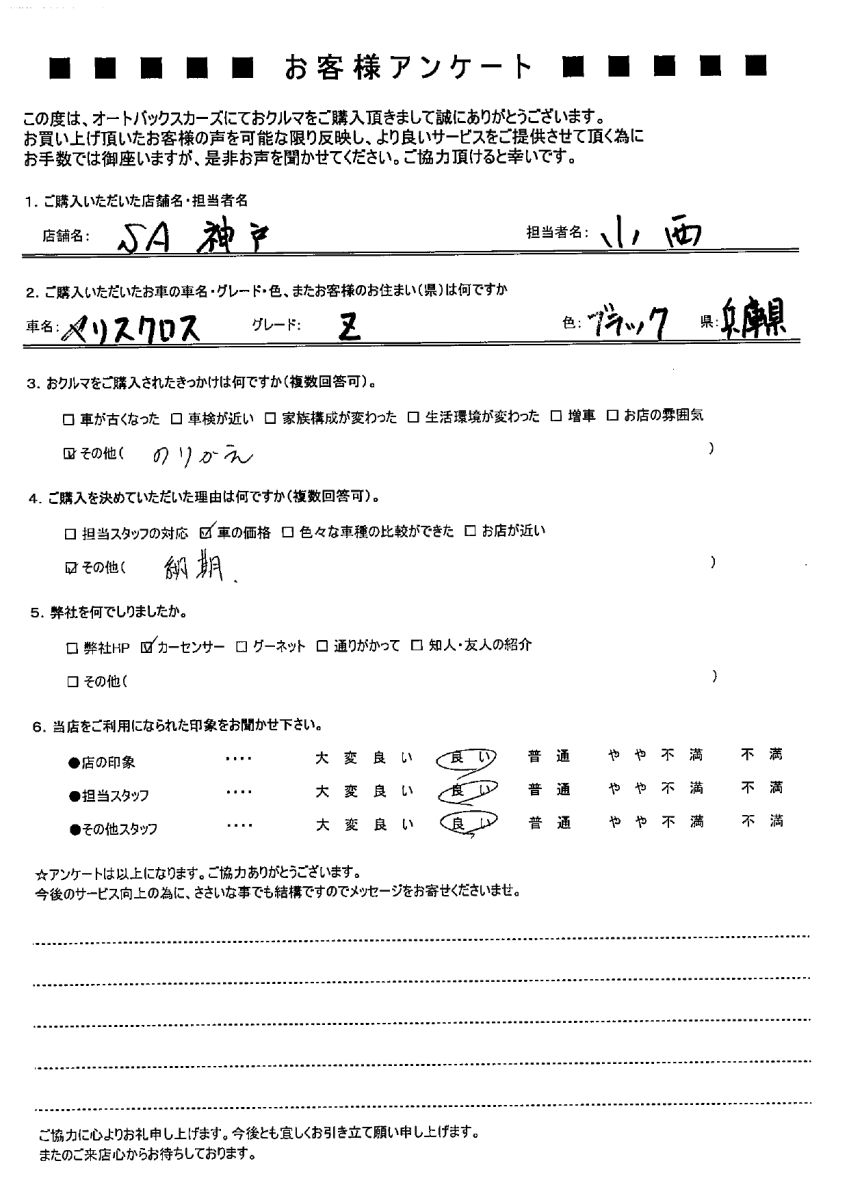 ■ ■ ■ ■ ■ お客様アンケート ■ ■ ■ ■ ■
この度は、オートバックスカーズにておクルマをご購入頂きまして誠にありがとうございます。
お買い上げ頂いたお客様の声を可能な限り反映し、より良いサービスをご提供させて頂く為に
お手数では御座いますが、是非お声を聞かせてください。ご協力頂けると幸いです。
1. ご購入いただいた店舗名・担当者名
店舗名: SA 神戸 担当者名: 小西
2. ご購入いただいたお車の車名・グレード・色、またお客様のお住まい(県)は何ですか
車名: ヤリスクロス グレード: Z 色: ブラック 県: 兵庫県
3. おクルマをご購入されたきっかけは何ですか(複数回答可)。
□ 車が古くなった □ 車検が近い □ 家族構成が変わった □ 生活環境が変わった □ 増車 □ お店の雰囲気
☑ その他( のりかえ )
4. ご購入を決めていただいた理由は何ですか(複数回答可)。
□ 担当スタッフの対応 ☑ 車の価格 □ 色々な車種の比較ができた □ お店が近い
☑ その他( 納期. )
5. 弊社を何でしりましたか。
□ 弊社HP ☑ カーセンサー □ グーネット □ 通りがかって □ 知人・友人の紹介
□ その他( )
6. 当店をご利用になられた印象をお聞かせ下さい。
●店の印象 ‥‥ 大変良い 良い 普通 やや不満 不満
●担当スタッフ ‥‥ 大変良い 良い 普通 やや不満 不満
●その他スタッフ ‥‥ 大変良い 良い 普通 やや不満 不満
☆アンケートは以上になります。ご協力ありがとうございます。
今後のサービス向上の為に、ささいな事でも結構ですのでメッセージをお寄せくださいませ。
ご協力に心よりお礼申し上げます。今後とも宜しくお引き立て願い申し上げます。
またのご来店心からお待ちしております。